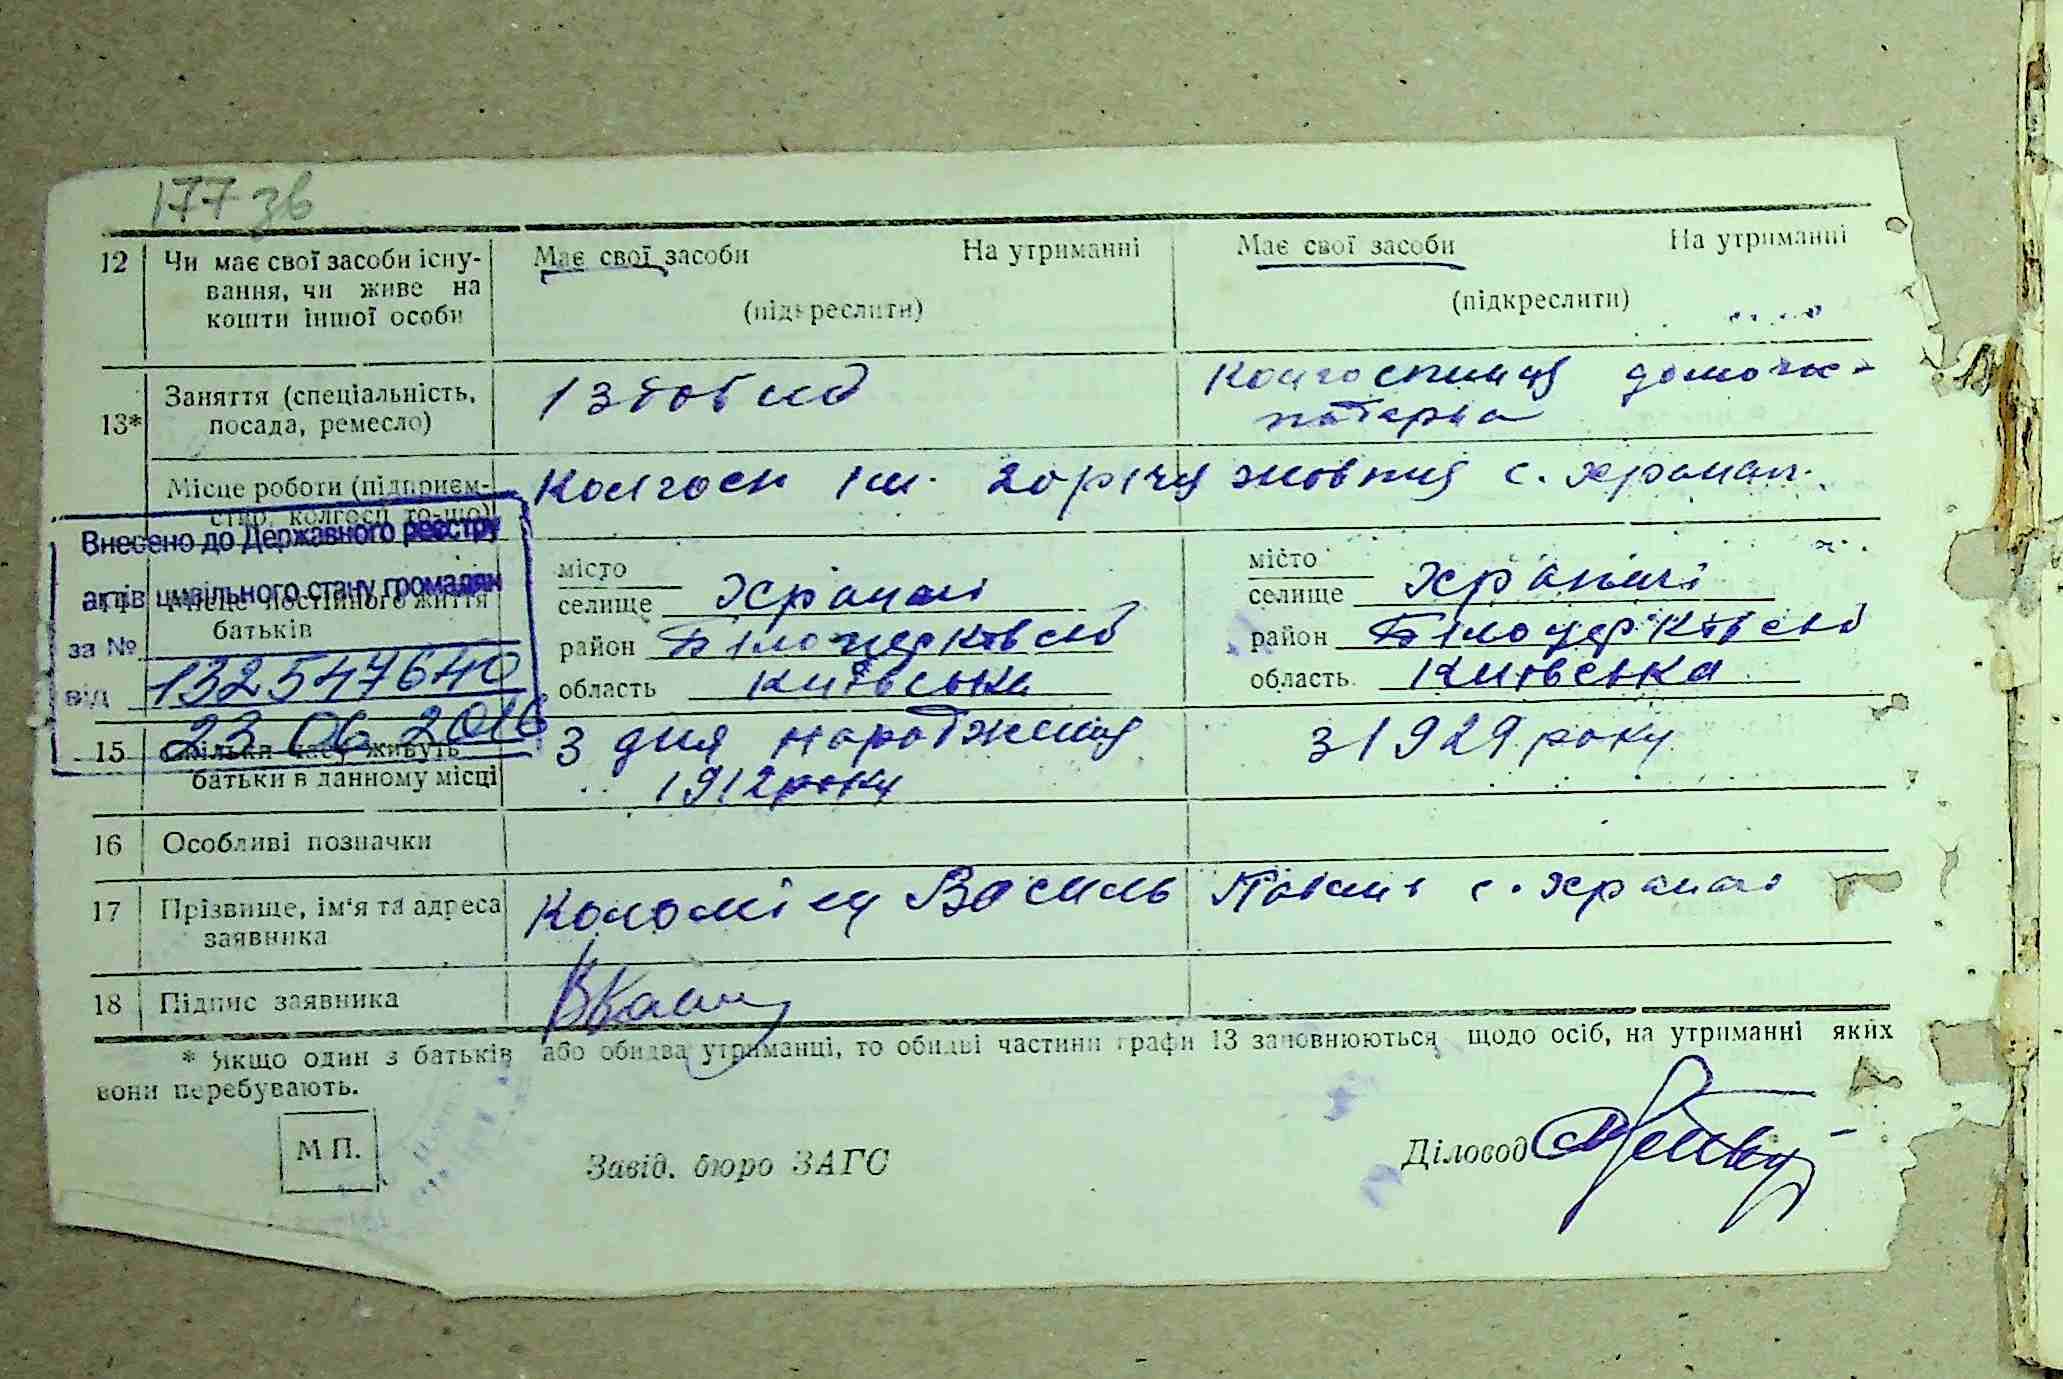 177 зв
12 Чи має свої засоби існу- Має свої засоби На утриманні Має свої засоби На утриманні
вання, чи живе на (підкреслити) (підкреслити)
кошти іншої особи
13* Заняття (спеціальність, Колгоспниця домогос-
посада, ремесло)
Місце роботи (підприєм- Колгосп ім. 20 річчя жовтня с. Храпач.
ство, колгосп то-що)
Внесено до Державного реєстру
актів цивільного стану громадян
за №
132547640
від
23 06 2016
Місце постійного життя місто місто
батьків селище Храпачі селище Храпачі
район Білоцерківськ район Білоцерківськ
область Київська область Київська
15 Скільки часу живуть З дня народження З 1929 року
батьки в данному місці 1912 року
16 Особливі позначки
17 Прізвище, ім'я та адреса Коломієц Василь с. Храпачі
заявника
18 Підпис заявника
* Якщо один з батьків або обидва утриманці, то обидві частини графи 13 заповнюються щодо осіб, на утриманні яких
вони перебувають.
М П. Завід. бюро ЗАГС Діловод